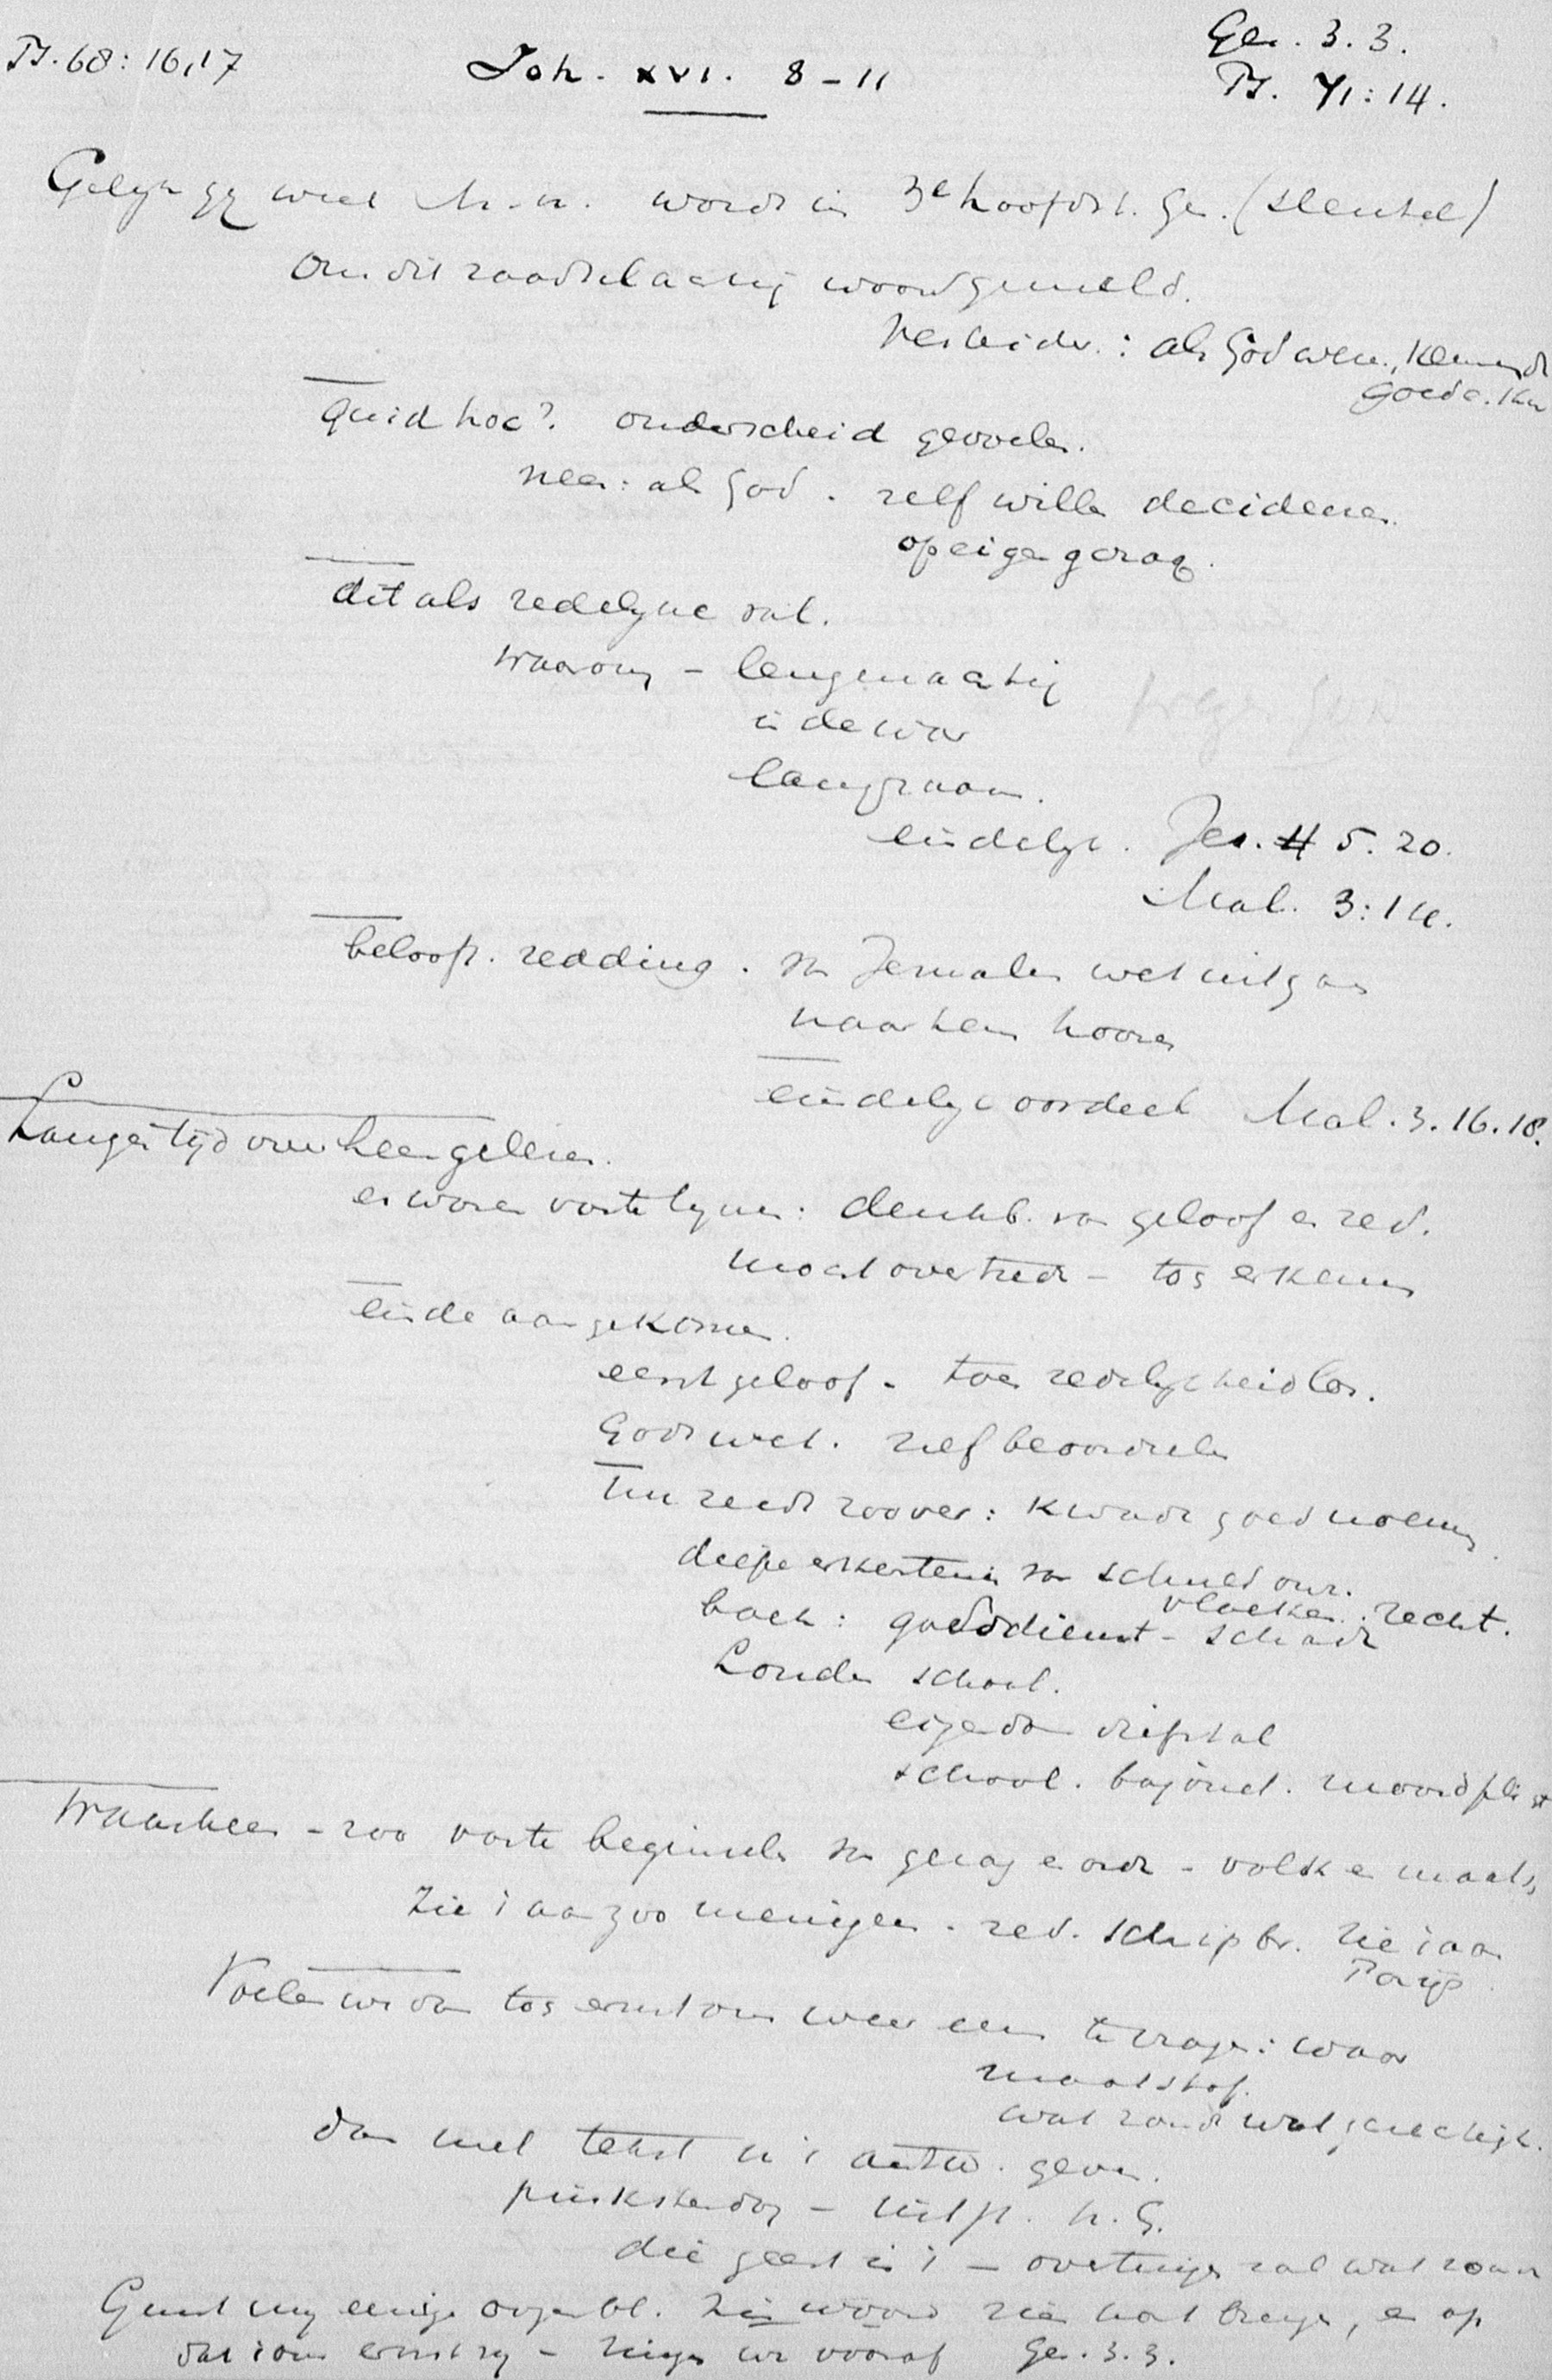 Ps. 68:16,17
Joh. XVI. 8-11
Ges. 3.3.
Ps. 71:14.
Gelijk gij weet M.H. wordt in 3e hoofdst. Ge. (sleutel)
om dit raadselachtig woord gemeld.
Verleider: als God wezen, kennende
goed e. kw
quid hoc? onderscheid gevoelen.
neen: als God. zelf willen decideren
op eigen gezag.
dit als redelyke val.
Waarom - leugenachtig
in de war
langzaam.
eindelyk. Jes. 5.20.
Mal. 3:14.
beloofd. redding. van Jerusalem wet uitgaan
naar hem hooren
eindelyk oordeel Mal. 3.16.18.
Lange tijd overheen geleden.
er waren vaste lynen: denkb. van geloof en red.
moest overtreder - toch erkennen
einde aan gekomen.
eerst geloof - toen redelykheid los.
Gods wet. zelf beoordeelen
Nu reeds zoover: kwade goed noemen
diepe erkentenis van schuld onr.
boek: godsdienst - schande
vloeken. recht.
Londen school.
eigendom diefstal
school. bajonet. moord plicht
Waarheen - zoo vaste beginselen van gezag en orde - volk en maats.
Zie 't aan zoo menigeen. red. schipbr. Zie 't aan
Parijs
Voelen we dan toch ernst om weer eens te vragen: waar
maatstaf.
wat zonde wat gerechtigh.
dan met tekst u 't antw. geven.
pinksterdag - uitst. H. G.
die geest is 't - overtuigen zal wat zonde
Gunt my eenige oogenbl. Zijn woord zien laat brengen, en op
dat 't ons ernst zy - zingen we vooraf Ge. 3.3.